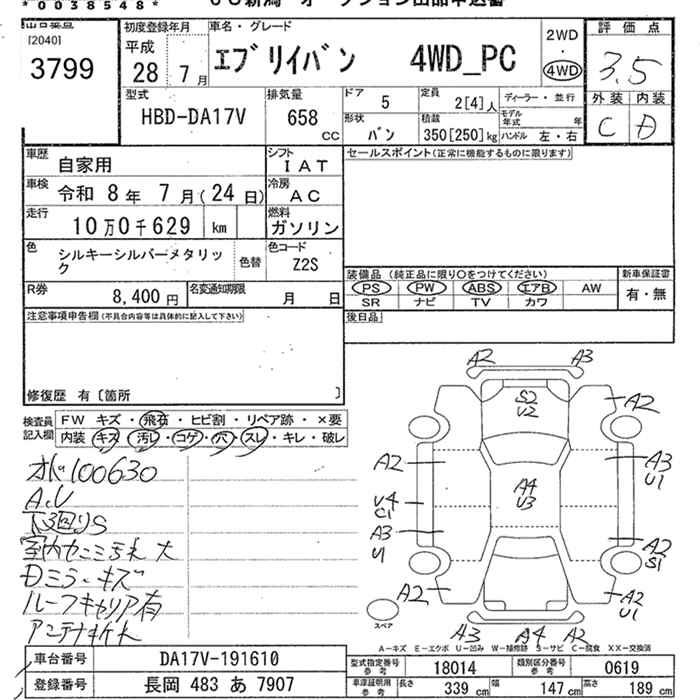 *0038548*
[2040]
3799
初度登録年月
平成
28年 7月
車名・グレード
エブリイバン 4WD_PC
2WD
・
4WD
評価点
3.5
外装 内装
C D
型式
HBD-DA17V
排気量
658 CC
ドア 5
定員 2[4]人
ディーラー・並行
形状 バン
積載 350[250]kg
モデル年式 年
ハンドル 左・右
車歴 自家用
シフト IAT
車検 令和 8年 7月(24日)
冷房 AC
走行 10万0千629 km
燃料 ガソリン
色 シルキーシルバーメタリック
色替
色コード Z2S
R券 8,400円
名変通知期限 月 日
セールスポイント(正常に機能するものに限ります)
装備品(純正品に限り○をつけてください)
PS PW ABS エアB AW
SR ナビ TV カワ
新車保証書
有・無
後日品
注意事項申告欄(不具合内容等は具体的に記入して下さい)
修復歴 有〔箇所 〕
検査員記入欄
FW キズ・飛石・ヒビ割・リペア跡・×要
内装 キズ・汚レ・コゲ・穴・スレ・キレ・破レ
100630
A.V
下廻りS
室内 大
Dミラーキズ
ルーフキャリア有
アンテナ折れ
A2 A3
S2
U2
A2 A2
A2 A3
U1
A4
U3
U4
C1
A3
U1
A2
S1
A2 A2
U1
A3 A4 A2
スペア
A-キズ E-エクボ U-凹み W-補修跡 S-サビ C-腐食 XX-交換済
車台番号 DA17V-191610
登録番号 長岡 483 あ 7907
型式指定番号 参考 18014
類別区分番号 参考 0619
車庫証明用 参考 長さ 339cm 幅 147cm 高さ 189cm